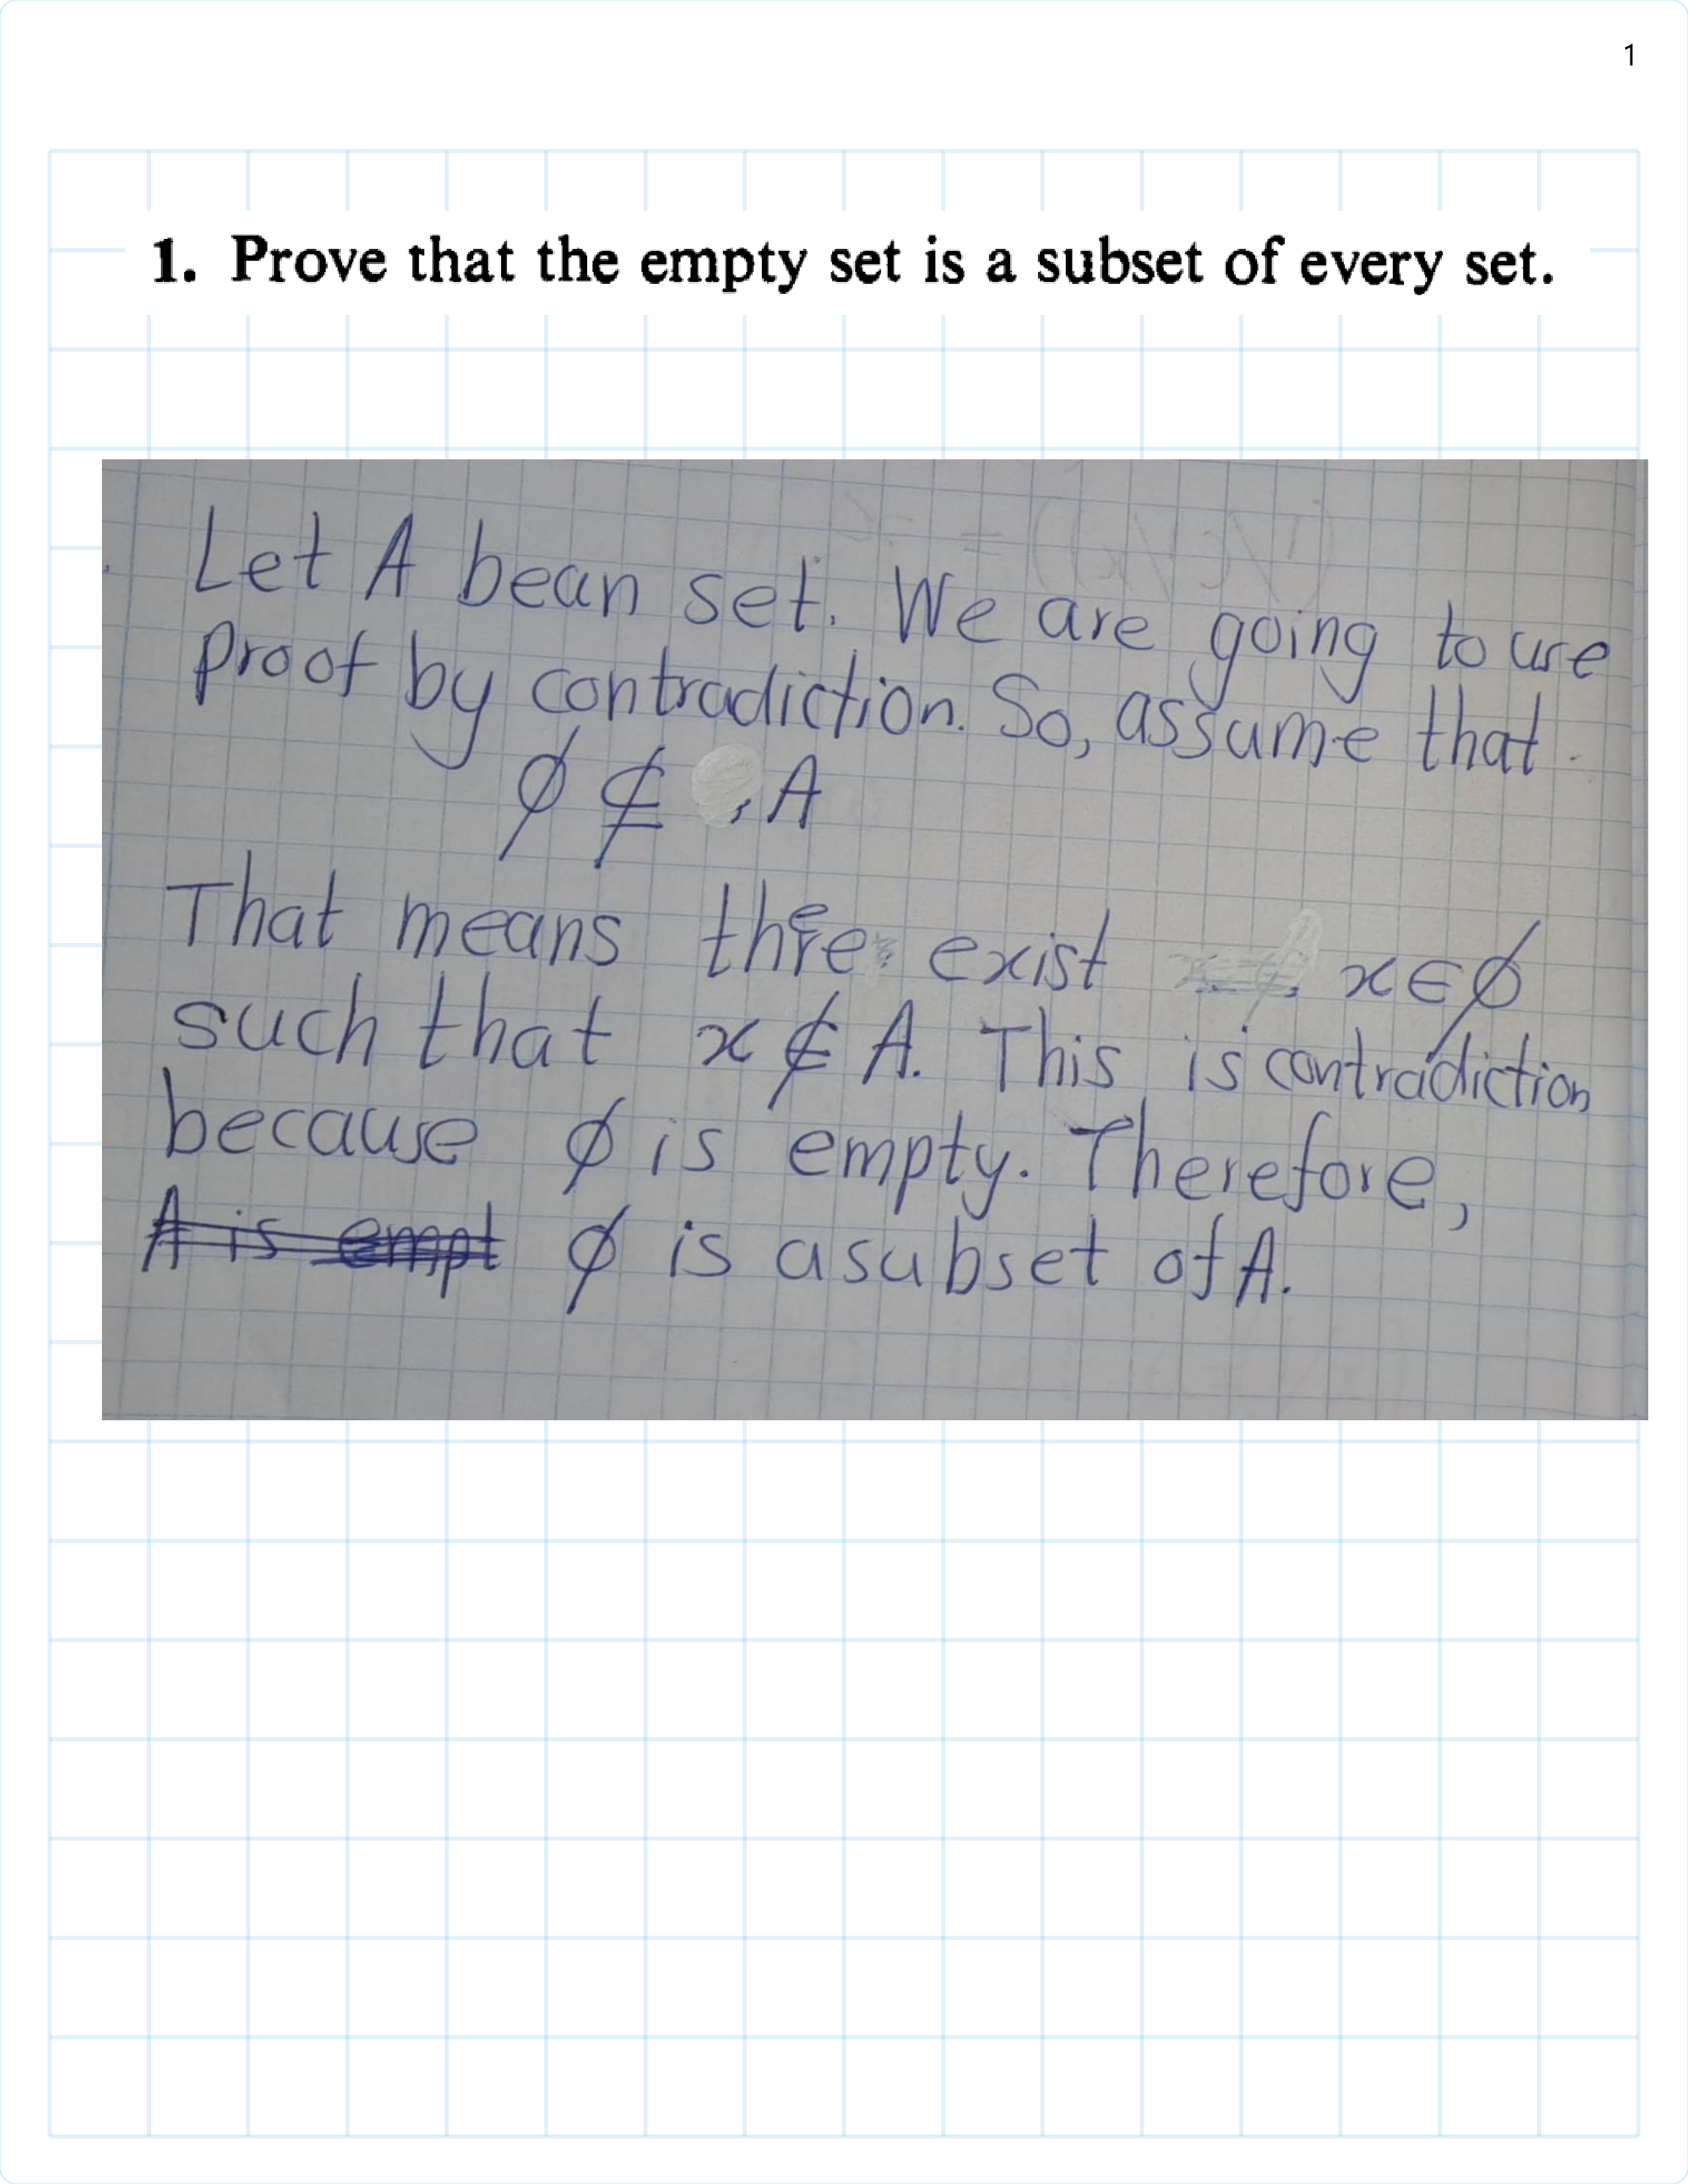 1
1. Prove that the empty set is a subset of every set.
Let A bean set. We are going to use
Proof by contradiction. So, assume that
∅ ⊈ A
That means there exist x∈∅
such that x ∉ A. This is contradiction
because ∅ is empty. Therefore,
A is empt ∅ is a subset of A.